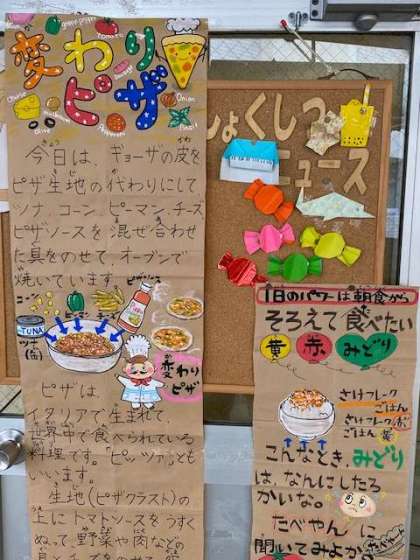 変わり
ピザ
green pepper
tomato
Cheese
mushroom
Olive
Sausage
Pepperoni
Onion
Basil
今日は、ギョーザの皮を
ピザ生地の代わりにして
ツナ、コーン、ピーマン、チーズ、
ピザソースを混ぜ合わせ
た具をのせて、オーブンで
焼いています。
コーン
ピーマン
チーズ
ピザソース
TUNA
ツナ
(缶)
変わり
ピザ
ピザは、
イタリアで生まれて、
世界中で食べられている
料理です。「ピッツァ」とも
いいます。
生地(ピザクラスト)の
上にトマトソースをうすく
ぬって、野菜や肉などの
具とチーズをのせて
しょくしつ
ニュース
1日のパワーは朝食から
そろえて食べたい
黄 赤 みどり
さけフレーク
ごはん
さけフレーク 赤
ごはん 黄
こんなとき、みどり
は、なんにしたら
かいな。
たべやん に
聞いてみよか